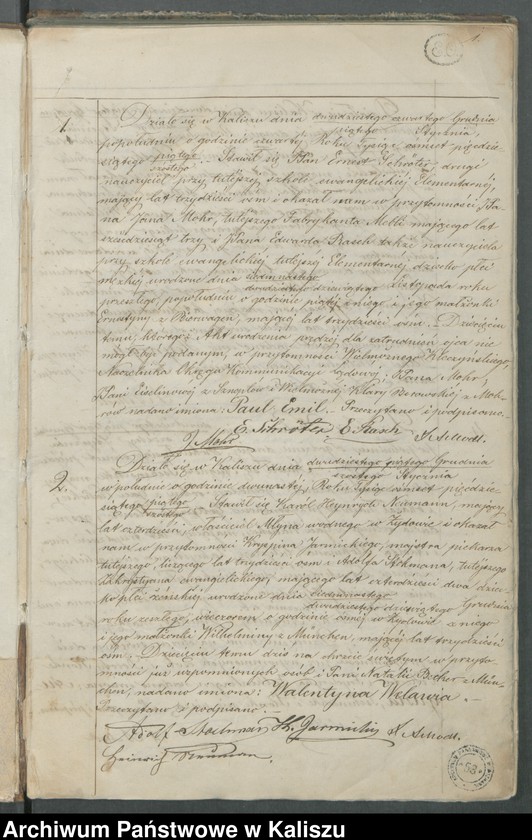 1.
Działo się w Kaliszu dnia dwudziestego czwartego Grudnia
piątego Stycznia,
popołudniu o godzinie czwartej Roku Tysiąc ośmset pięćdzie-
siątego piątego szóstego. Stawił się Pan Ernest Schröter, drugi
nauczyciel przy tutejszej szkole ewangelickiej Elementarnej,
mający lat trzydzieści ośm i okazał nam w przytomności Pa-
na Jana Mohr, tutejszego Fabrykanta Mebli mającego lat
sześćdziesiąt trzy, i Pana Edwarda Rasch także nauczyciela
przy szkole ewangelickiej tutejszej Elementarnej, dziecko płci
męzkiej urodzone dnia siedmnastego
dwudziestego dziewiątego Listopada roku
przeszłego, popołudniu o godzinie piątej z niego i jego małżonki
Ernestyny z mającej lat trzydzieści ośm. Dziecięciu
temu, którego Akt urodzenia prędzej dla zatrudnień ojca nie
mógł być podanym, w przytomności Wielmożnego Kleczyńskiego,
Naczelnika Okręgu Kommunikacyi Lądowej, Pana Mohr,
Pani i Wielmożnej Klary z Moh-
rów nadano imiona: Paul Emil. Przeczytano i podpisano.
E. Schröter E. Rasch
J. Mohr
2.
Działo się w Kaliszu dnia dwudziestego piątego Grudnia
szóstego Stycznia
w południe o godzinie dwunastej, Roku Tysiąc ośmset pięćdzie-
siątego piątego szóstego. Stawił się Karól Heynrych Neumann, mający
lat czterdzieści, właściciel Młyna wodnego w Żydowie i okazał
nam w przytomności Kryspina Jarnickiego, majstra piekarza
tutejszego, liczącego lat trzydzieści ośm i Adolfa tutejszego
Zakrystyana ewangelickiego, mającego lat czterdzieści dwa dziec-
ko płci żeńskiej, urodzone dnia siedmnastego
dwudziestego dziewiątego Grudnia
roku zeszłego, wieczorem o godzinie ósmej w Żydowie z niego
i jego małżonki Wilhelminy z München, mającej lat trzydzieści
ośm. Dziecięciu temu dziś na chrzcie świętym w przyto-
mności już wspomnionych osób i Pani Natalii Becker z Mün-
chen, nadano imiona: Walentyna Welawia.
Przeczytano i podpisano.
Adolf
Heinrich Neumann.
58
Archiwum Państwowe w Kaliszu